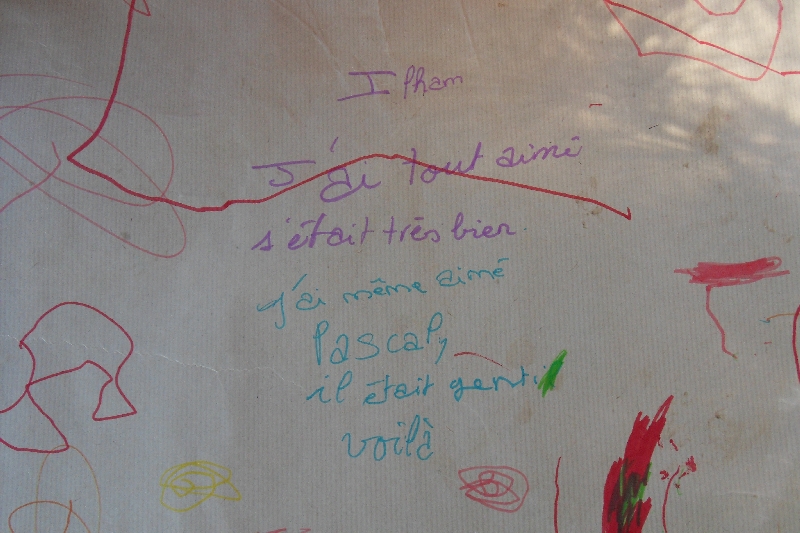 Ilham
J'ai tout aimé
s'était très bien
j'ai même aimé
Pascal,
il était gentil
voilà